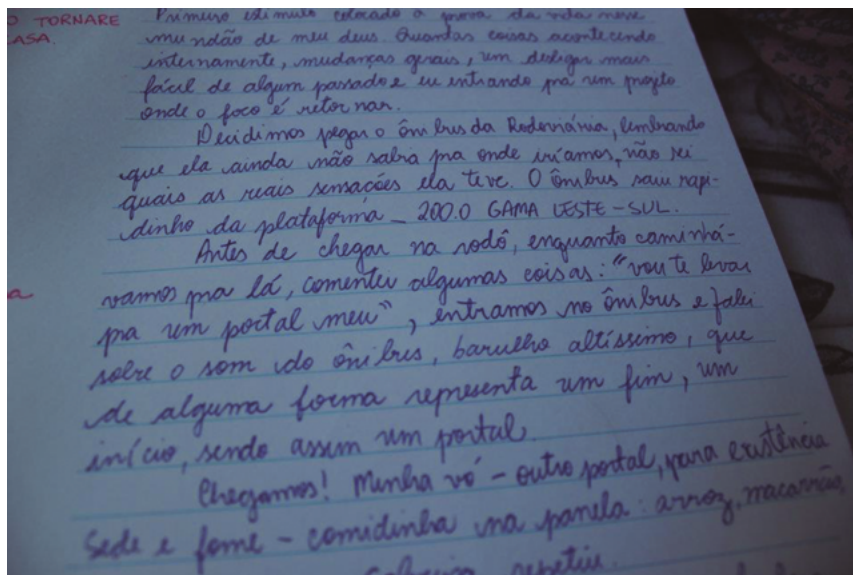 O TORNARE
CASA
Primeiro estímulo colocado a prova da vida nesse
mundão de meu deus. Quantas coisas acontecendo
internamente, mudanças gerais, um desligar mais
fácil de algum passado e eu entrando pra um projeto
onde o foco é retornar.
Decidimos pegar o ônibus da Rodoviária, lembrando
que ela ainda não sabia pra onde iríamos, não sei
quais as reais sensações ela teve. O ônibus saiu rapi-
dinho da plataforma _ 200.0 GAMA LESTE-SUL.
Antes de chegar na rodô, enquanto caminhá-
vamos pra lá, comentei algumas coisas: "vou te levar
pra um portal meu", entramos no ônibus e falei
sobre o som do ônibus, barulho altíssimo, que
de alguma forma representa um fim, um
início, sendo assim um portal.
Chegamos! Minha vó - outro portal, para existência
Sede e fome - comidinha na panela: arroz, macarrão,
repetiu.